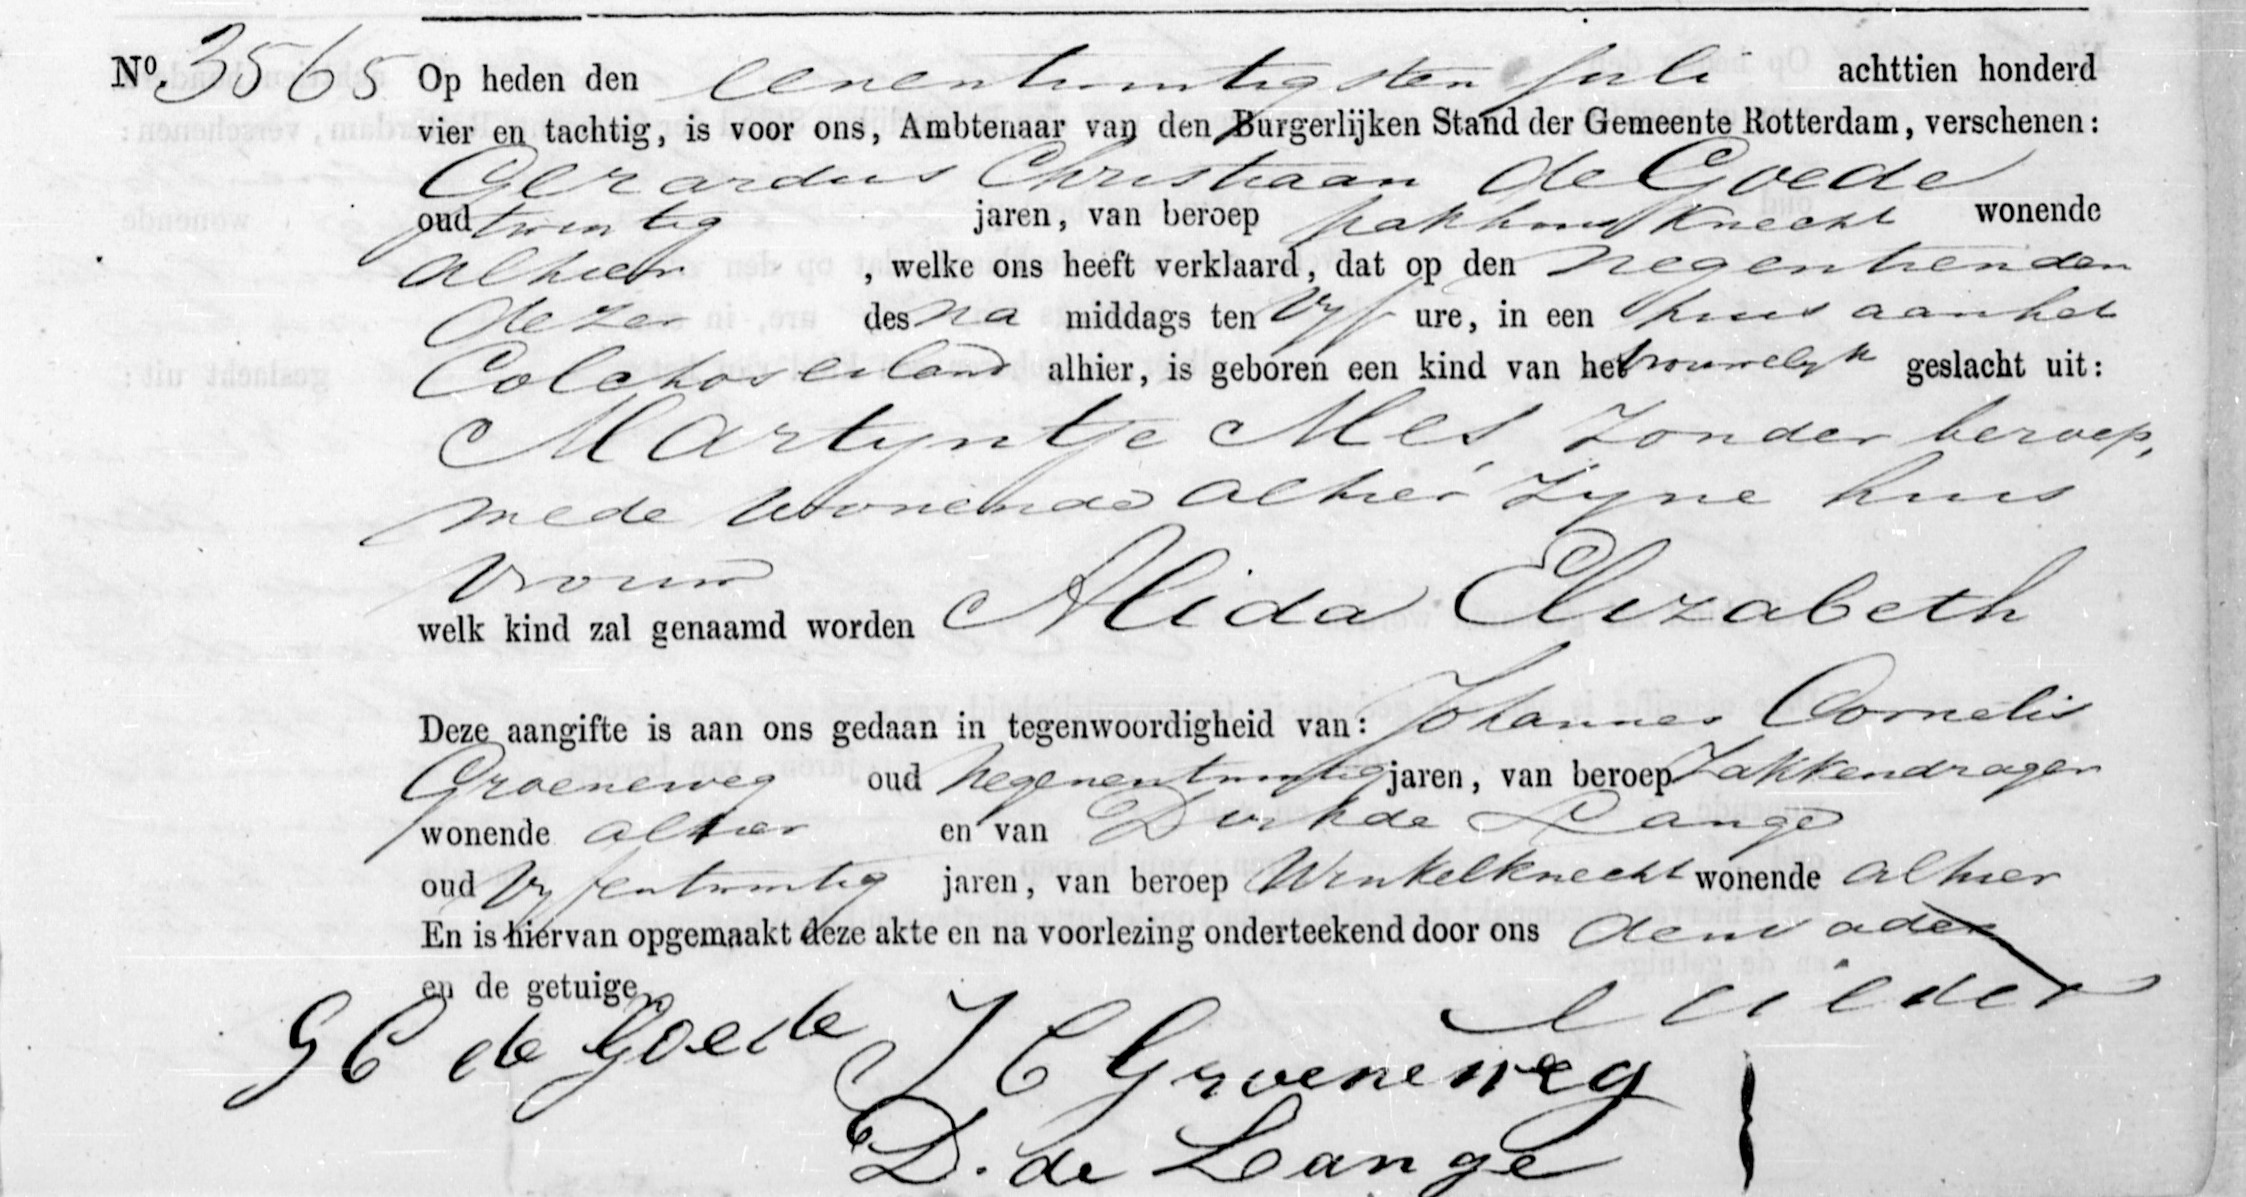 No. 3565 Op heden den eenentwintigsten Juli achttien honderd
vier en tachtig, is voor ons, Ambtenaar van den Burgerlijken Stand der Gemeente Rotterdam, verschenen:
Gerardus Christiaan de Goede
oud twintig jaren, van beroep pakhuisknecht wonende
alhier, welke ons heeft verklaard, dat op den negentienden
dezer des na middags ten vyf ure, in een huis aan het
alhier, is geboren een kind van het vrouwelyk geslacht uit:
Martyntje Mes, zonder beroep,
mede wonende alhier zyne huis
vrouw
welk kind zal genaamd worden Alida Elizabeth
Deze aangifte is aan ons gedaan in tegenwoordigheid van: Johannes Cornelis
Groeneweg oud negenentwintig jaren, van beroep Zakkendrager
wonende alhier en van Dirk de Lange
oud vyfentwintig jaren, van beroep Winkelknecht wonende alhier
En is hiervan opgemaakt deze akte en na voorlezing onderteekend door ons den vader
en de getuige
G C de Goede J C Groeneweg
D. de Lange